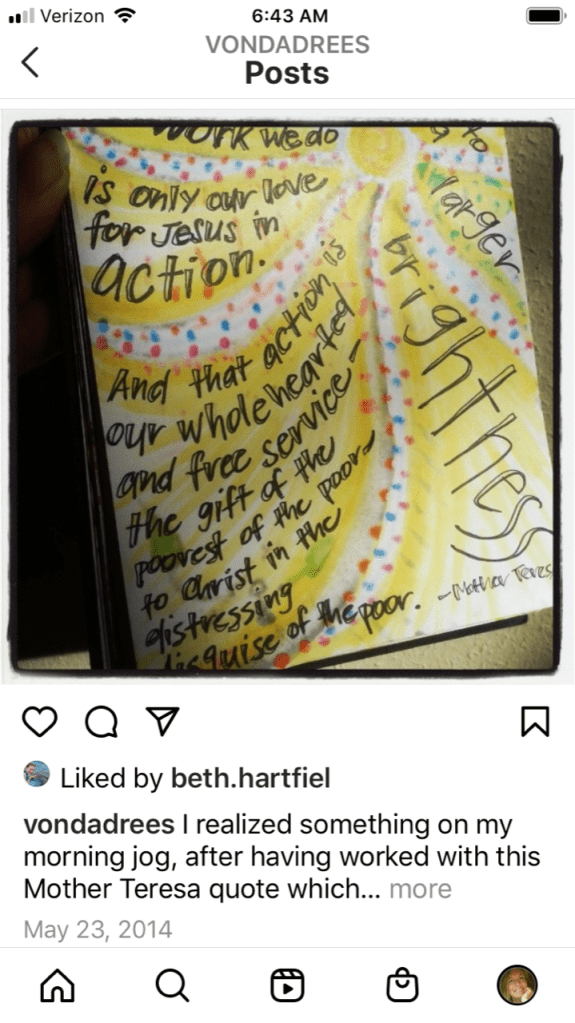 Verizon 6:43 AM
VONDADREES
Posts
work we do
is only our love
for Jesus in
action.
And that action is
our wholehearted
and free service–
the gift of the
poorest of the poor–
to Christ in the
distressing
disguise of the poor.
to
larger
brightness
–Mother Teres
Liked by beth.hartfiel
vondadrees I realized something on my
morning jog, after having worked with this
Mother Teresa quote which... more
May 23, 2014